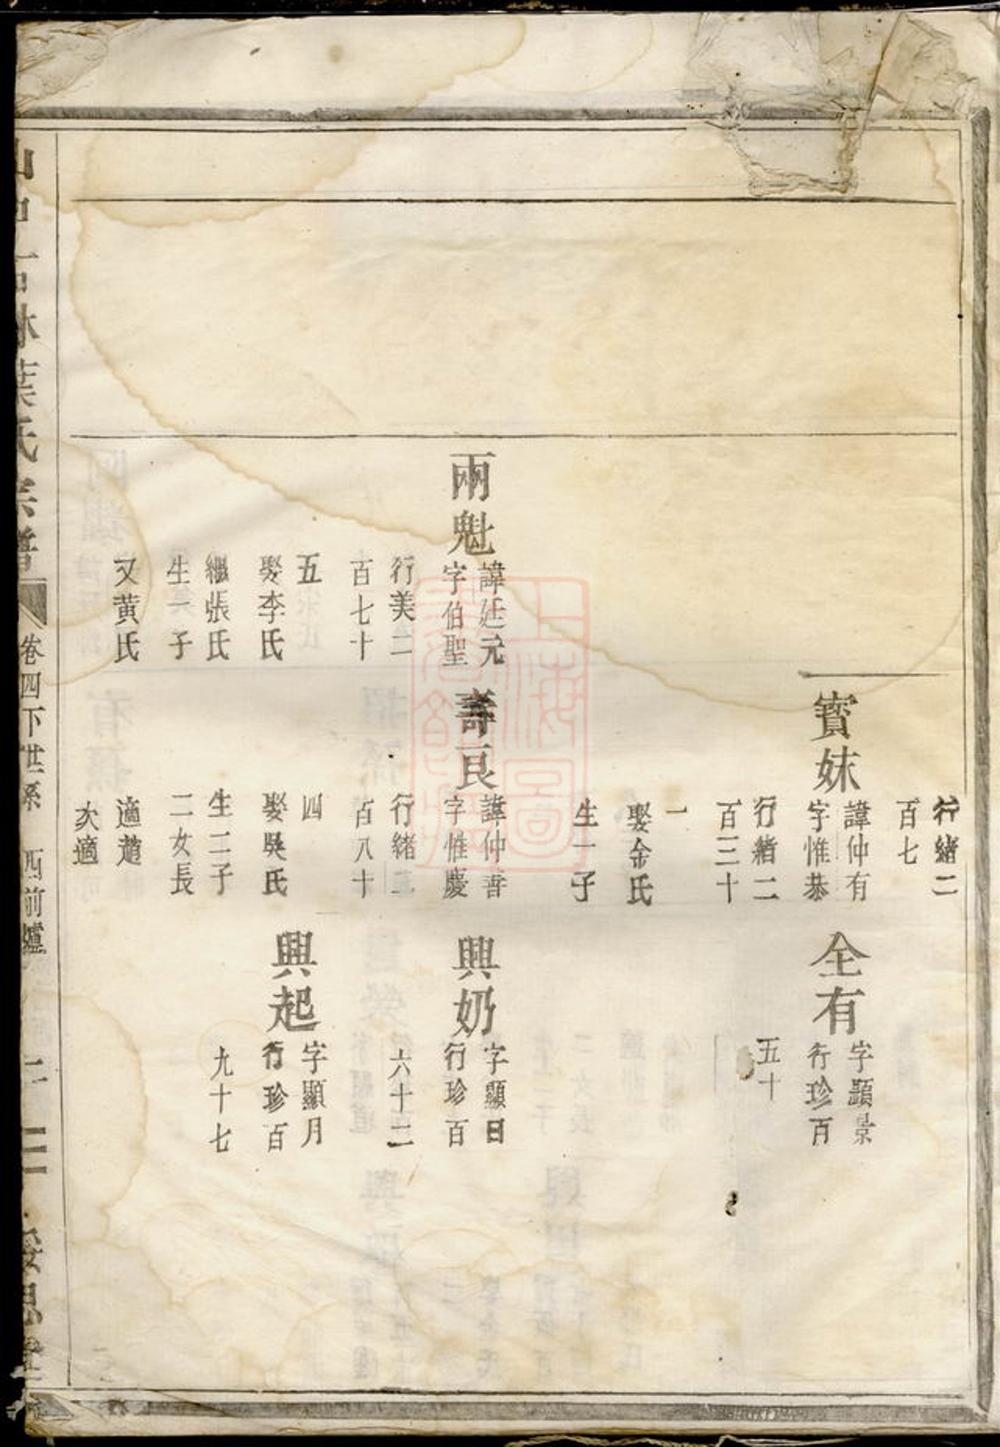 行緒二
百七
寳妹
諱仲有
字惟恭
行緒二
百三十
一
娶金氏
生一子
全有
字顯景
行珍百
五十
兩魁
諱廷元
字伯聖
行美二
百七十
五
娶李氏
繼張氏
生一子
又黄氏
壽良
諱仲書
字惟慶
行緒二
百八十
四
娶吳氏
生二子
二女長
適趙
次適
興奶
字顯日
行珍百
六十二
興起
字顯月
行珍百
九十七
葉氏宗譜
卷四下世系
西前爐